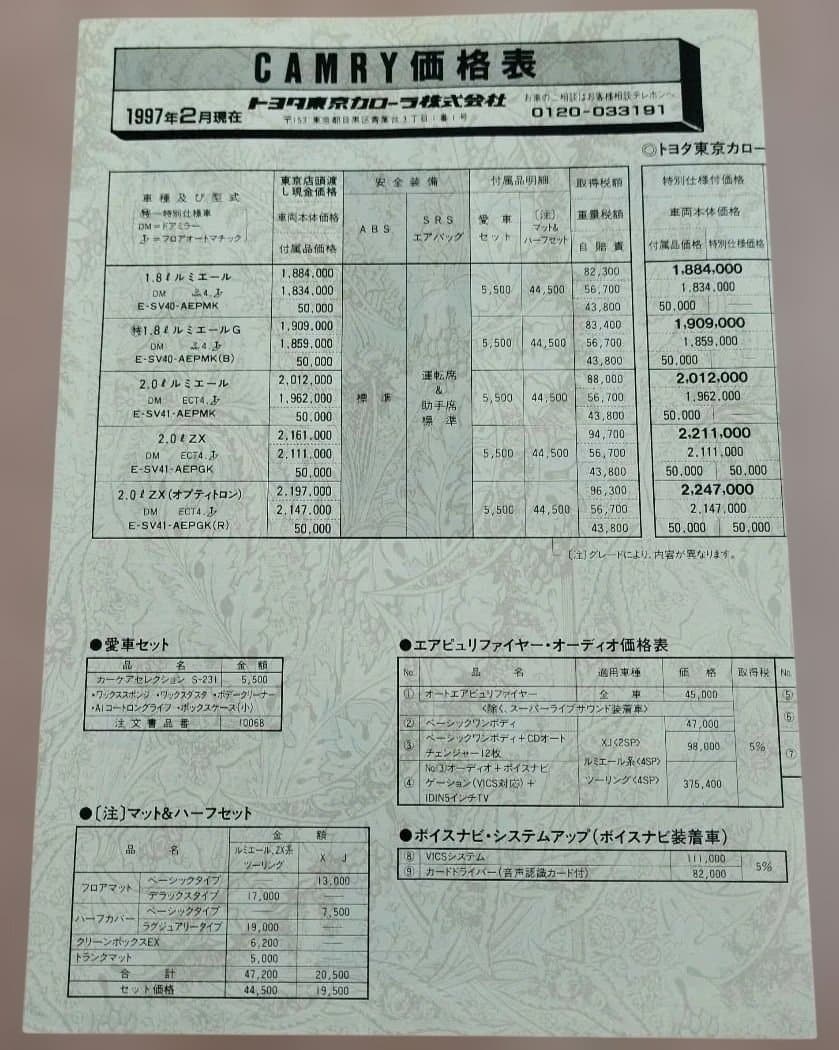 CAMRY価格表
1997年2月現在 トヨタ東京カローラ株式会社 お車のご相談はお客様相談テレホンへ
〒153 東京都目黒区青葉台3丁目1番1号 0120-033191
◎トヨタ東京カロー
車種及び型式 東京店頭渡し現金価格 安全装備 付属品明細 取得税額 特別仕様付価格
㊕=特別仕様車 車両本体価格 ABS SRSエアバッグ 愛車セット 〔注〕マット&ハーフセット 重量税額 車両本体価格
DM=ドアミラー
=フロアオートマチック 付属品価格 自賠責 付属品価格 特別仕様価格
1.8ℓルミエール 1,884,000 82,300 1,884,000
DM 4. 1,834,000 5,500 44,500 56,700 1,834,000
E-SV40-AEPMK 50,000 43,800 50,000
㊕1.8ℓルミエールG 1,909,000 83,400 1,909,000
DM 4. 1,859,000 5,500 44,500 56,700 1,859,000
E-SV40-AEPMK(B) 50,000 43,800 50,000
2.0ℓルミエール 2,012,000 88,000 2,012,000
DM ECT4. 1,962,000 標準 運転席&助手席標準 5,500 44,500 56,700 1,962,000
E-SV41-AEPMK 50,000 43,800 50,000
2.0ℓZX 2,161,000 94,700 2,211,000
DM ECT4. 2,111,000 5,500 44,500 56,700 2,111,000
E-SV41-AEPGK 50,000 43,800 50,000 50,000
2.0ℓZX(オプティトロン) 2,197,000 96,300 2,247,000
DM ECT4. 2,147,000 5,500 44,500 56,700 2,147,000
E-SV41-AEPGK(R) 50,000 43,800 50,000 50,000
〔注〕グレードにより、内容が異なります。
●愛車セット
品名 金額
カーケアセレクション S-231 5,500
・ワックススポンジ・ワックスダスタ・ボデークリーナー
・Aiコートロングライフ・ボックスケース(小)
注文書品番 10068
〔注〕マット&ハーフセット
品名 金額
ルミエール、ZX系ツーリング XJ
フロアマット ベーシックタイプ 13,000
デラックスタイプ 17,000
ハーフカバー ベーシックタイプ 7,500
ラグジュアリータイプ 19,000
クリーンボックスEX 6,200
トランクマット 5,000
合計 47,200 20,500
セット価格 44,500 19,500
●エアピュリファイヤー・オーディオ価格表
No. 品名 適用車種 価格 取得税 No.
① オートエアピュリファイヤー 全車 45,000 ⑤
<除く、スーパーライブサウンド装着車>
② ベーシックワンボディ 47,000 ⑥
③ ベーシックワンボディ+CDオートチェンジャー12枚 XJ<2SP> 98,000 5% ⑦
ルミエール系<4SP>
④ No.③オーディオ+ボイスナビゲーション(VICS対応)+IDIN5インチTV ツーリング<4SP> 375,400
●ボイスナビ・システムアップ(ボイスナビ装着車)
⑧ VICSシステム 111,000 5%
⑨ カードドライバー(音声認識カード付) 82,000